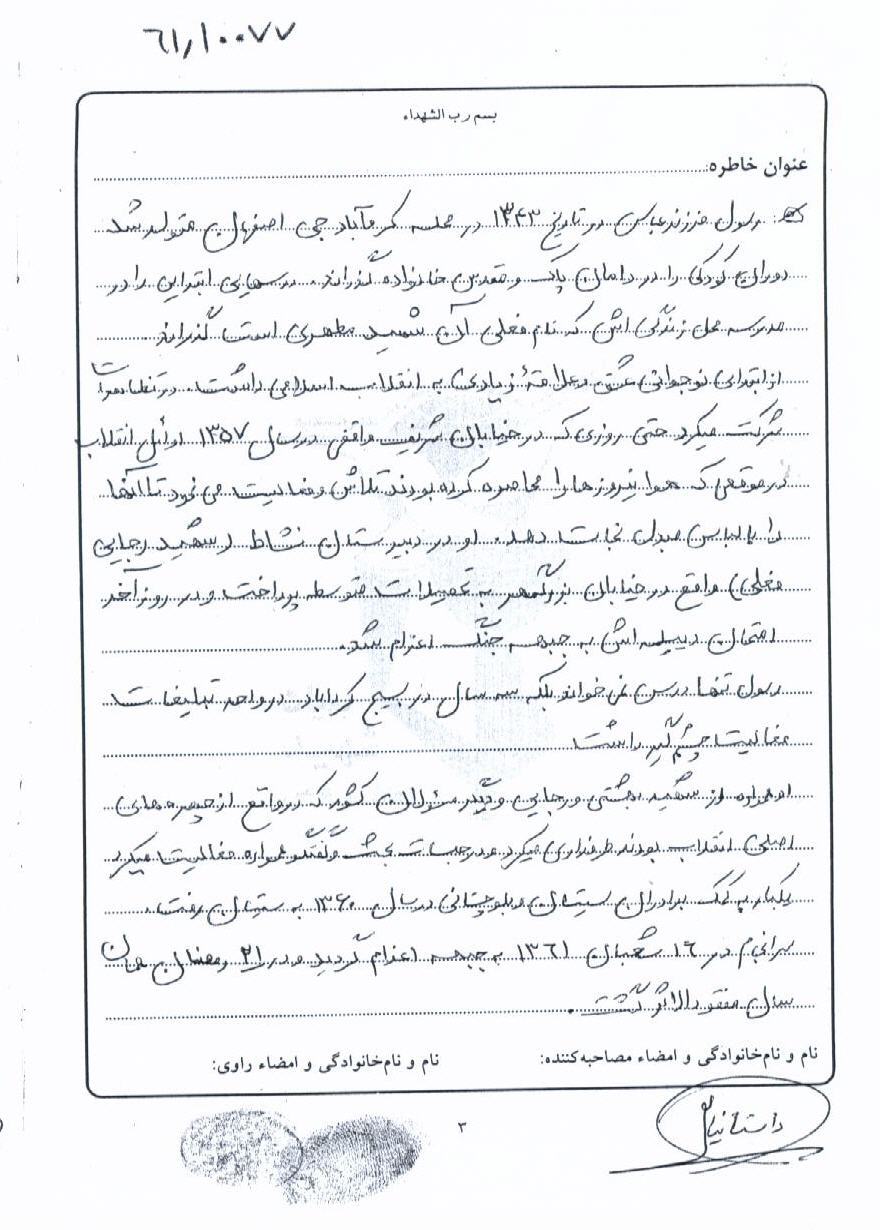 ٦١٫١٠٠٧٧
بسم رب الشهداء
عنوان خاطره:
رسول فرزند عباس در تاریخ ۱۳۴۳ در محله کردآباد جی اصفهان متولد شد
دوران کودکی را در دامان پاک و مقدس خانواده گذراند. درسهای ابتدایی را در
مدرسه محل زندگی اش که نام فعلی آن شهید مطهری است گذراند.
از ابتدای نوجوانی عشق و علاقهٔ زیادی به انقلاب اسلامی داشت. در تظاهرات
شرکت میکرد حتی روزی که در خیابان شریف واقفی در سال ۱۳۵۷ اوائل انقلاب
در موقعی که هوانیروزها را محاصره کرده بودند تلاش و فعالیت می نمود تا آنها
را با لباس مبدل نجات دهد. او در دبیرستان نشاط (شهید رجایی
فعلی) واقع در خیابان بزرگمهر به تحصیلات متوسطه پرداخت و در روز آخر
امتحان دیپلم اش به جبهه جنگ اعزام شد.
رسول تنها درس نمی خواند بلکه سه سال در بسیج کردآباد در واحد تبلیغات
فعالیت چشم گیر داشت
او همواره از شهید بهشتی و رجایی و دیگر مسؤلان کشور که در واقع از چهره های
اصلی انقلاب بودند طرفداری میکرد و در جلسات بحث و گفتگو همواره فعالیت میکرد
یکبار به کمک برادران سیستان و بلوچستانی در سال ۱۳۶۰ به سیستان رفت.
سرانجام در ۱۶ شعبان ۱۳۶۱ به جبهه اعزام گردید و در ۲۱ رمضان همان
سال مفقودالاثر گشت.
نام و نام‌خانوادگی و امضاء مصاحبه‌کننده:
نام و نام‌خانوادگی و امضاء راوی:
۳